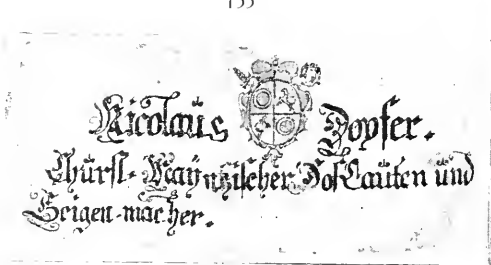 Nicolaüs Dopfer.
Chürfl. Maynzischer Hof Laüten ünd
Geigen-macher.